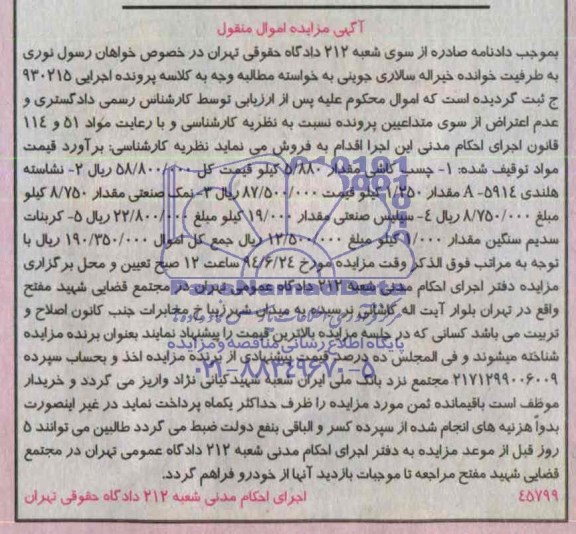 آگهی مزایده اموال منقول
بموجب دادنامه صادره از سوی شعبه ۲۱۲ دادگاه حقوقی تهران در خصوص خواهان رسول نوری
به طرفیت خوانده خیراله سالاری جوینی به خواسته مطالبه وجه به کلاسه پرونده اجرایی ۹۳۰۲۱۵
ج ثبت گردیده است که اموال محکوم علیه پس از ارزیابی توسط کارشناس رسمی دادگستری و
عدم اعتراض از سوی متداعیین پرونده نسبت به نظریه کارشناسی و با رعایت مواد ۵۱ و ۱۱۴
قانون اجرای احکام مدنی این اجرا اقدام به فروش می نماید نظریه کارشناسی: برآورد قیمت
مواد توقیف شده: ۱- چسب کاشی مقدار ۵/۸۸۰ کیلو قیمت کل ۵۸/۸۰۰/۰۰۰ ریال ۲- نشاسته
هلندی A -۵۹۱۴ مقدار ۱/۲۵۰ کیلو قیمت ۸۷/۵۰۰/۰۰۰ ریال ۳- نمک صنعتی مقدار ۸/۷۵۰ کیلو
مبلغ ۸/۷۵۰/۰۰۰ ریال ٤- سیلیس صنعتی مقدار ۱۹/۰۰۰ کیلو مبلغ ۲۲/۸۰۰/۰۰۰ ریال ۵- کربنات
سدیم سنگین مقدار ۱/۰۰۰ کیلو مبلغ ۱۲/۵۰۰/۰۰۰ ریال جمع کل اموال ۱۹۰/۳۵۰/۰۰۰ ریال با
توجه به مراتب فوق الذکر وقت مزایده مورخ ۹٤/۶/۲٤ ساعت ۱۲ صبح تعیین و محل برگزاری
مزایده دفتر اجرای احکام مدنی شعبه ۲۱۲ دادگاه عمومی تهران در مجتمع قضایی شهید مفتح
واقع در تهران بلوار آیت اله کاشانی نرسیده به میدان شهرزیبا خ مخابرات جنب کانون اصلاح و
تربیت می باشد کسانی که در جلسه مزایده بالاترین قیمت را پیشنهاد نمایند بعنوان برنده مزایده
شناخته میشوند و فی المجلس ده درصد قیمت پیشنهادی از برنده مزایده اخذ و بحساب سپرده
۲۱۷۱۲۹۹۰۰۶۰۰۹ مجتمع نزد بانک ملی ایران شعبه شهید کیانی نژاد واریز می گردد و خریدار
موظف است باقیمانده ثمن مورد مزایده را ظرف حداکثر یکماه پرداخت نماید در غیر اینصورت
بدواً هزینه های انجام شده از سپرده کسر و الباقی بنفع دولت ضبط می گردد طالبین می توانند ۵
روز قبل از موعد مزایده به دفتر اجرای احکام مدنی شعبه ۲۱۲ دادگاه عمومی تهران در مجتمع
قضایی شهید مفتح مراجعه تا موجبات بازدید آنها از خودرو فراهم گردد.
٤۵۷۹۹ اجرای احکام مدنی شعبه ۲۱۲ دادگاه حقوقی تهران
پایگاه اطلاع رسانی مناقصه و مزایده
۰۲۱-۸۸۳۴۹۶۷۰-۵